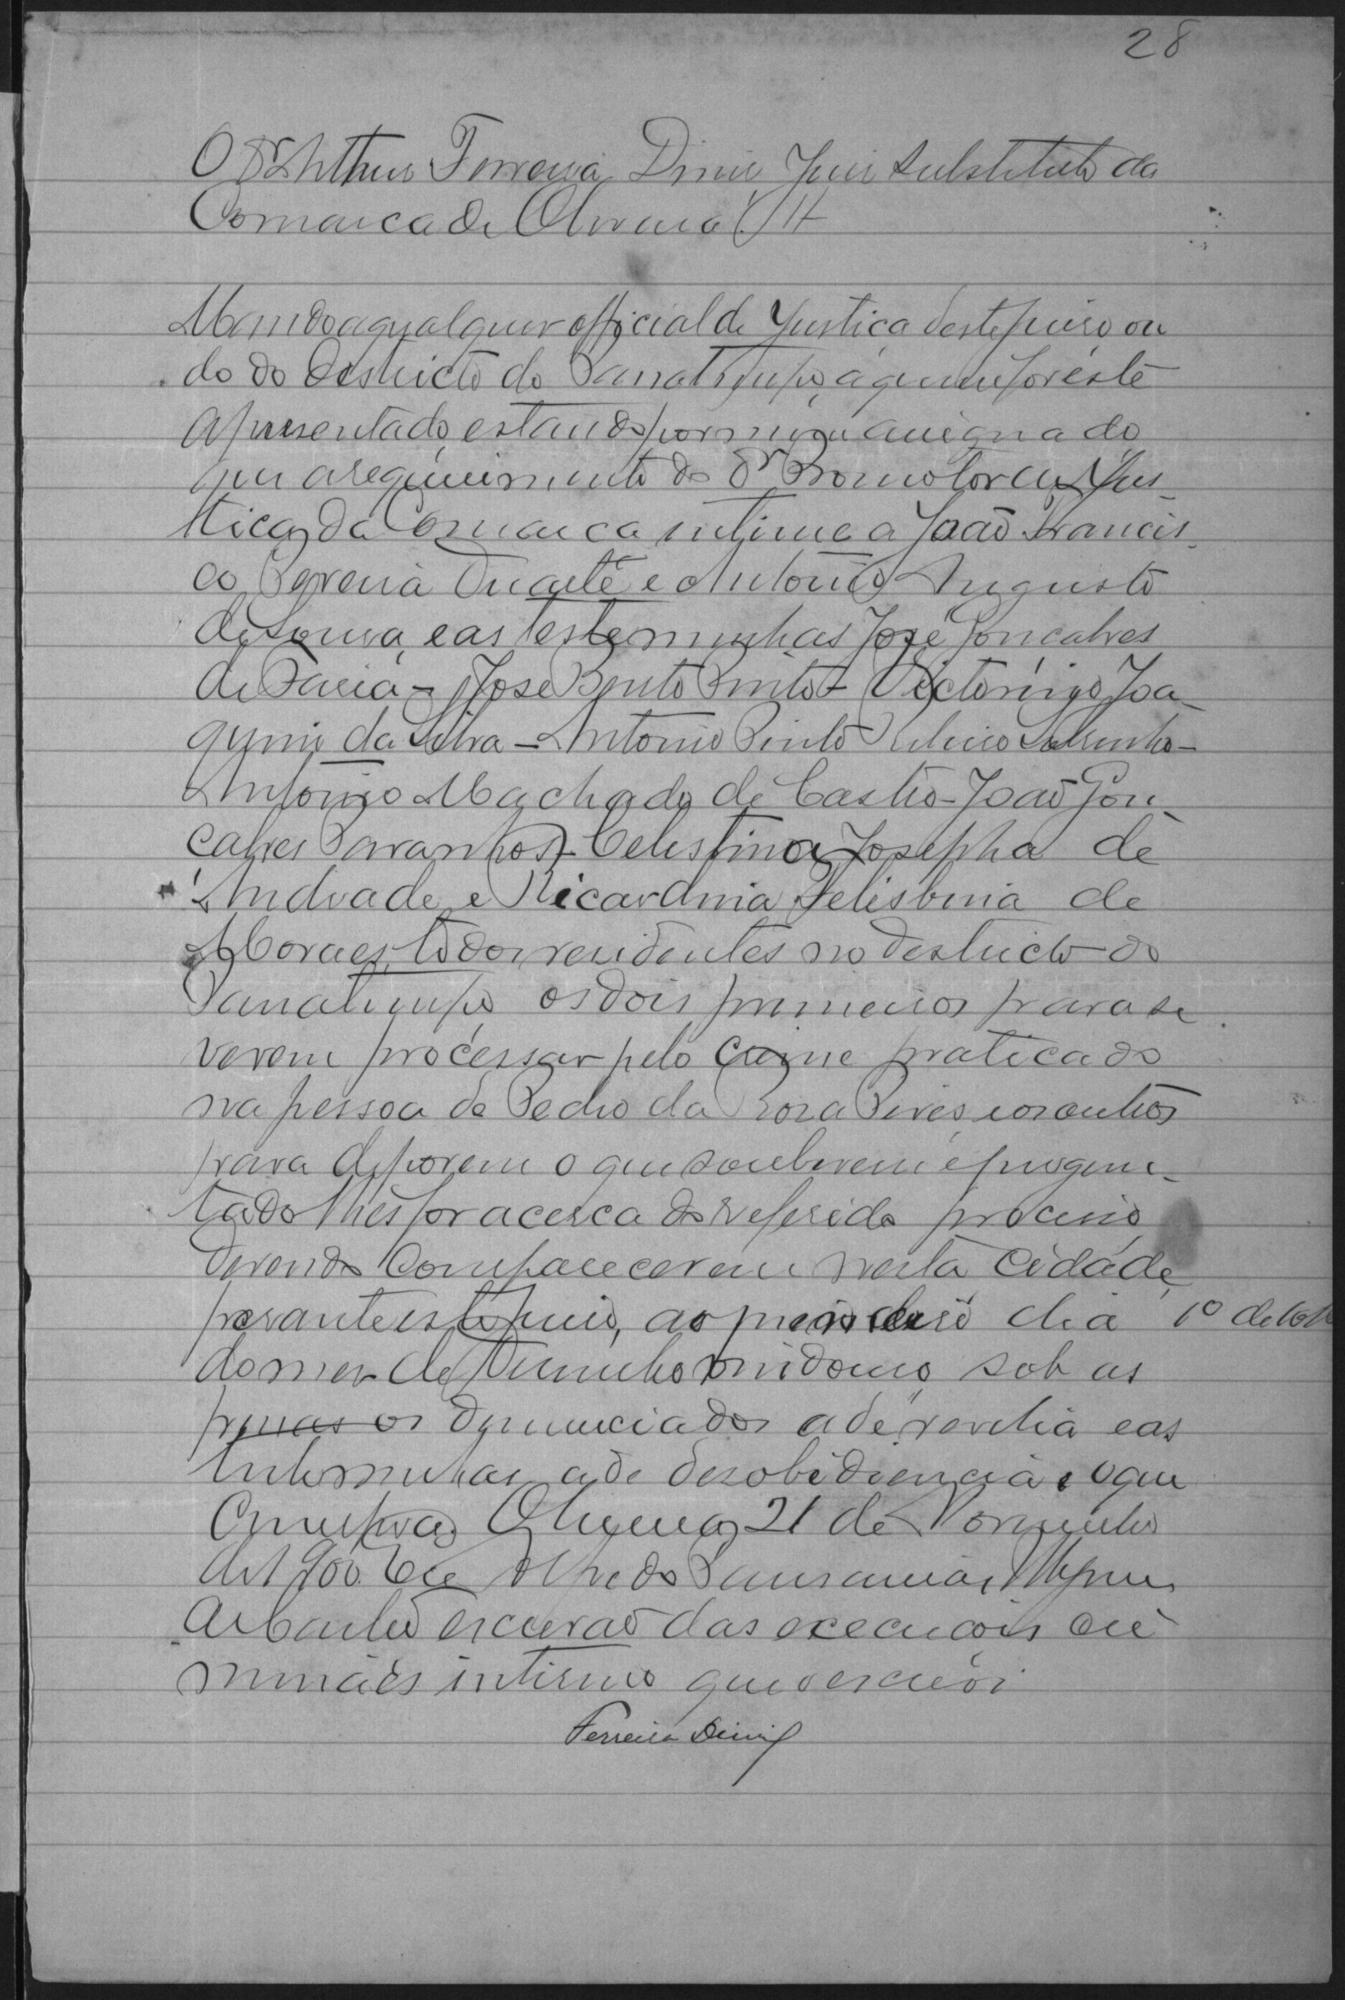 28
O Dr Arthur Ferreira Diniz Juiz Substituto da
Comarca de Oliveira
Mando a qualquer official de Justiça deste juiso ou
do do Destricto do Passatempo, á quem for este
apresentado estando por mim assignado
que a requirimento do Dr Promotor de Jus-
tiça da Comarca intime a João Francis-
co Pereira Duarte e Antonio Augusto
de Sousa, e as testeminhas José Goncalves
de Faria - José Bento Pinto - Victorino Joa-
quim da Silva - Antonio Pinto Ribeiro Sobrinho -
Antonio Machado de Castro - João Gon-
calves Paranhos - Celestina Josepha de
Andrade e Ricardina Felisbina de
Moraes, todos residentes no destricto do
Passatempo os dois primeiros para se
verem processar pelo crime praticado
na pessoa de Pedro da Rosa Pires e os outros
para deporem o que souberem e pregun-
tado lhes for acerca do referido processo
devendo comparecerem nesta cidade
perante este juiso, ao dia 1º de
do mes de Dezembro vindouro, sob as
penas os denunciados a de revelia e as
testeminhas a de desobidiencia, o que
Cumpra. Oliveira, 21 de Novembro
de 1900. Eu Alfredo
escrivão das execuções cri
minaes interino que o escrevi
Ferreira Diniz